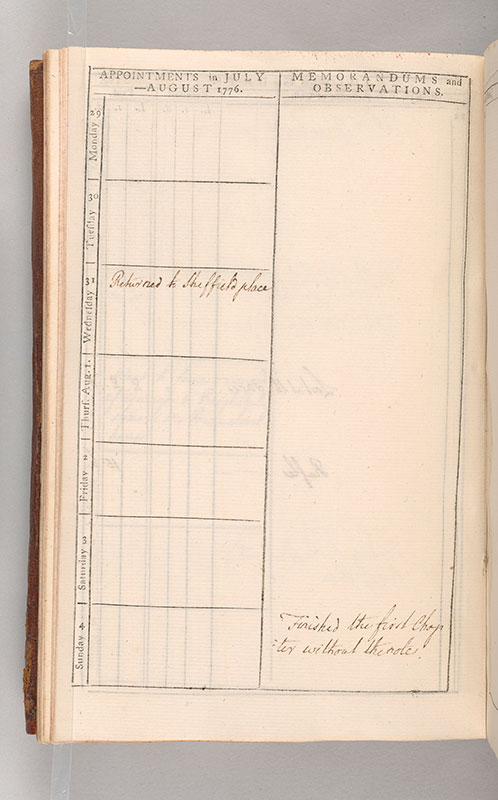 APPOINTMENTS in JULY
—AUGUST 1776.
MEMORANDUMS and
OBSERVATIONS.
Monday 29
Tuesday 30
Wednesday 31
Returned to Sheffield place
Thurs. Aug. 1.
Friday 2
Saturday 3
Sunday 4
Finished the first Chap
=ter without the notes.